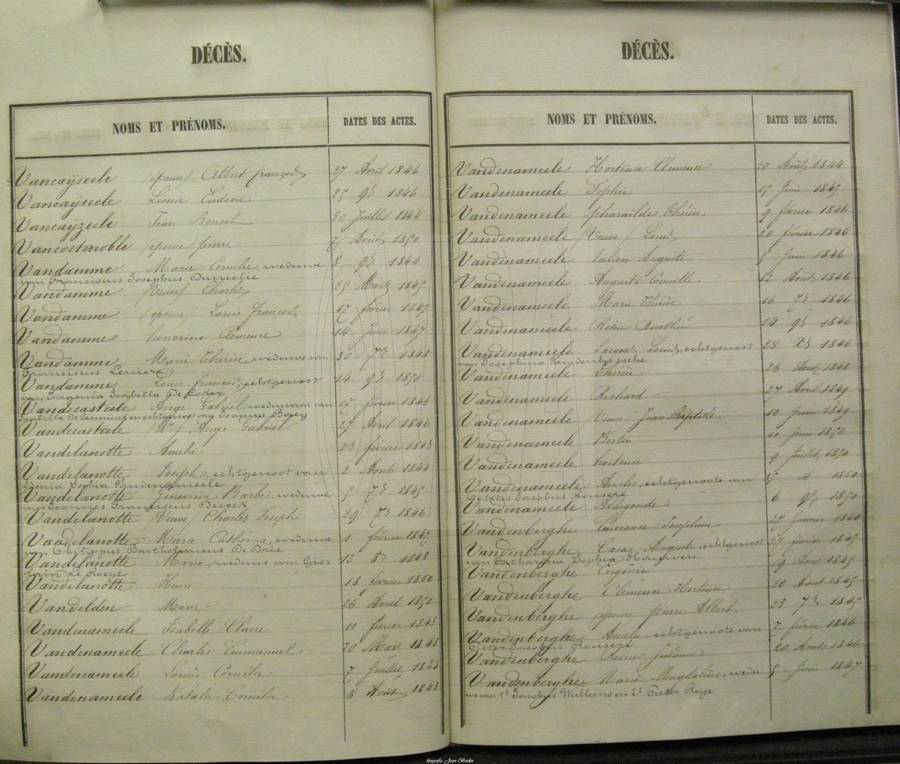 DÉCÈS.
NOMS ET PRÉNOMS. DATES DES ACTES.
Vancayseele (épouse) Albert François 27 Avril 1846
Vancayseele Léonie Ludovie 25 9bre 1846
Vancayzeele Jean Benoit 30 Juillet 1844
Vancostenoble épouse pierre 7 Août 1850
Vandamme Marie Cornélie, weduwe 8 9bre 1844
van Franciscus Josephus
Vandamme (veuve) Charles 25 Mars 1845
Vandamme (épouse) Louis François 17 février 1847
Vandamme honorine Clémence 14 Juin 1847
Vandamme Marie Thérèse, weduwe van 30 7bre 1848
Franciscus
Vandamme Louis françois, echtgenoot 14 9bre 1850
van Eugenia Isabella De
Vandecasteele Ange Gabriel, weduwnaar van 17 février 1846
en echtgenoot van Joanna
Vandecasteele Ange Gabriel 27 Avril 1846
Vandelanotte Amélie 23 février 1843
Vandelanotte Joseph, echtgenoot van 2 Août 1844
Sophia Vandenameele
Vandelanotte Geneviève Barbe, weduwe 5 7bre 1845
van Joannes Franciscus
Vandelanotte (Veuve) Charles Joseph 29 7bre 1846
Vandelanotte Marie Catherine, weduwe 1 février 1847
van Philippus Bartholomeus De Brie
Vandelanotte Marie, weduwe van 13 8bre 1848
Vandelanotte Henri 18 février 1850
Vandelden Marie 26 Avril 1850
Vandenameele Isabelle Claire 11 février 1843
Vandenameele Charles Emmanuel 20 Mars 1843
Vandenameele Louise Cornélie 7 Juillet
Vandenameele Natalie Cornélie 8 Août 1843
DÉCÈS.
NOMS ET PRÉNOMS. DATES DES ACTES.
Vandenameele Hortence Clémence 20 Août 1844
Vandenameele Sophie 15 Juin 1845
Vandenameele pharaïlde Thérèse 9 février 1846
Vandenameele (Veuve) Louis 20 février 1846
Vandenameele Julien Auguste 5 Juin 1846
Vandenameele Auguste Camille 12 Août 1846
Vandenameele Marie Thérèse 16 7bre 1846
Vandenameele Reine Dorothée 14 9bre 1846
Vandenameele Jacques Louis, echtgenoot 28 Xbre 1846
van Josephina
Vandenameele Thérèse 26 Août 1848
Vandenameele Richard 27 Avril 1849
Vandenameele (Veuve) Jean Baptiste 10 Juin 1849
Vandenameele 11 Juin 1850
Vandenameele hortence 9 Juillet 1850
Vandenameele Amélie, echtgenoote van 1850
Pieter Jacobus
Vandenameele Aldegonde 6 9bre 1850
Vandenberghe Laurence Joséphine Janvier 1844
Vandenberghe César Auguste, echtgenoot 27 février 1845
van Catharina Sophia
Vandenberghe Eugénie 9 Août 1845
Vandenberghe Clémence Hortence 20 Août 1845
Vandenberghe épouse pierre Albert 23 7bre 1845
Vandenberghe Amelie echtgenoote van 7 février 1846
Pieter Jacobus
Vandenberghe Rosine Julienne 20 Août 1846
Vandenberghe Marie Magdeleine, wedu 5 Juin 1847
we van 1° Jacobus Willems en 2° Pieter